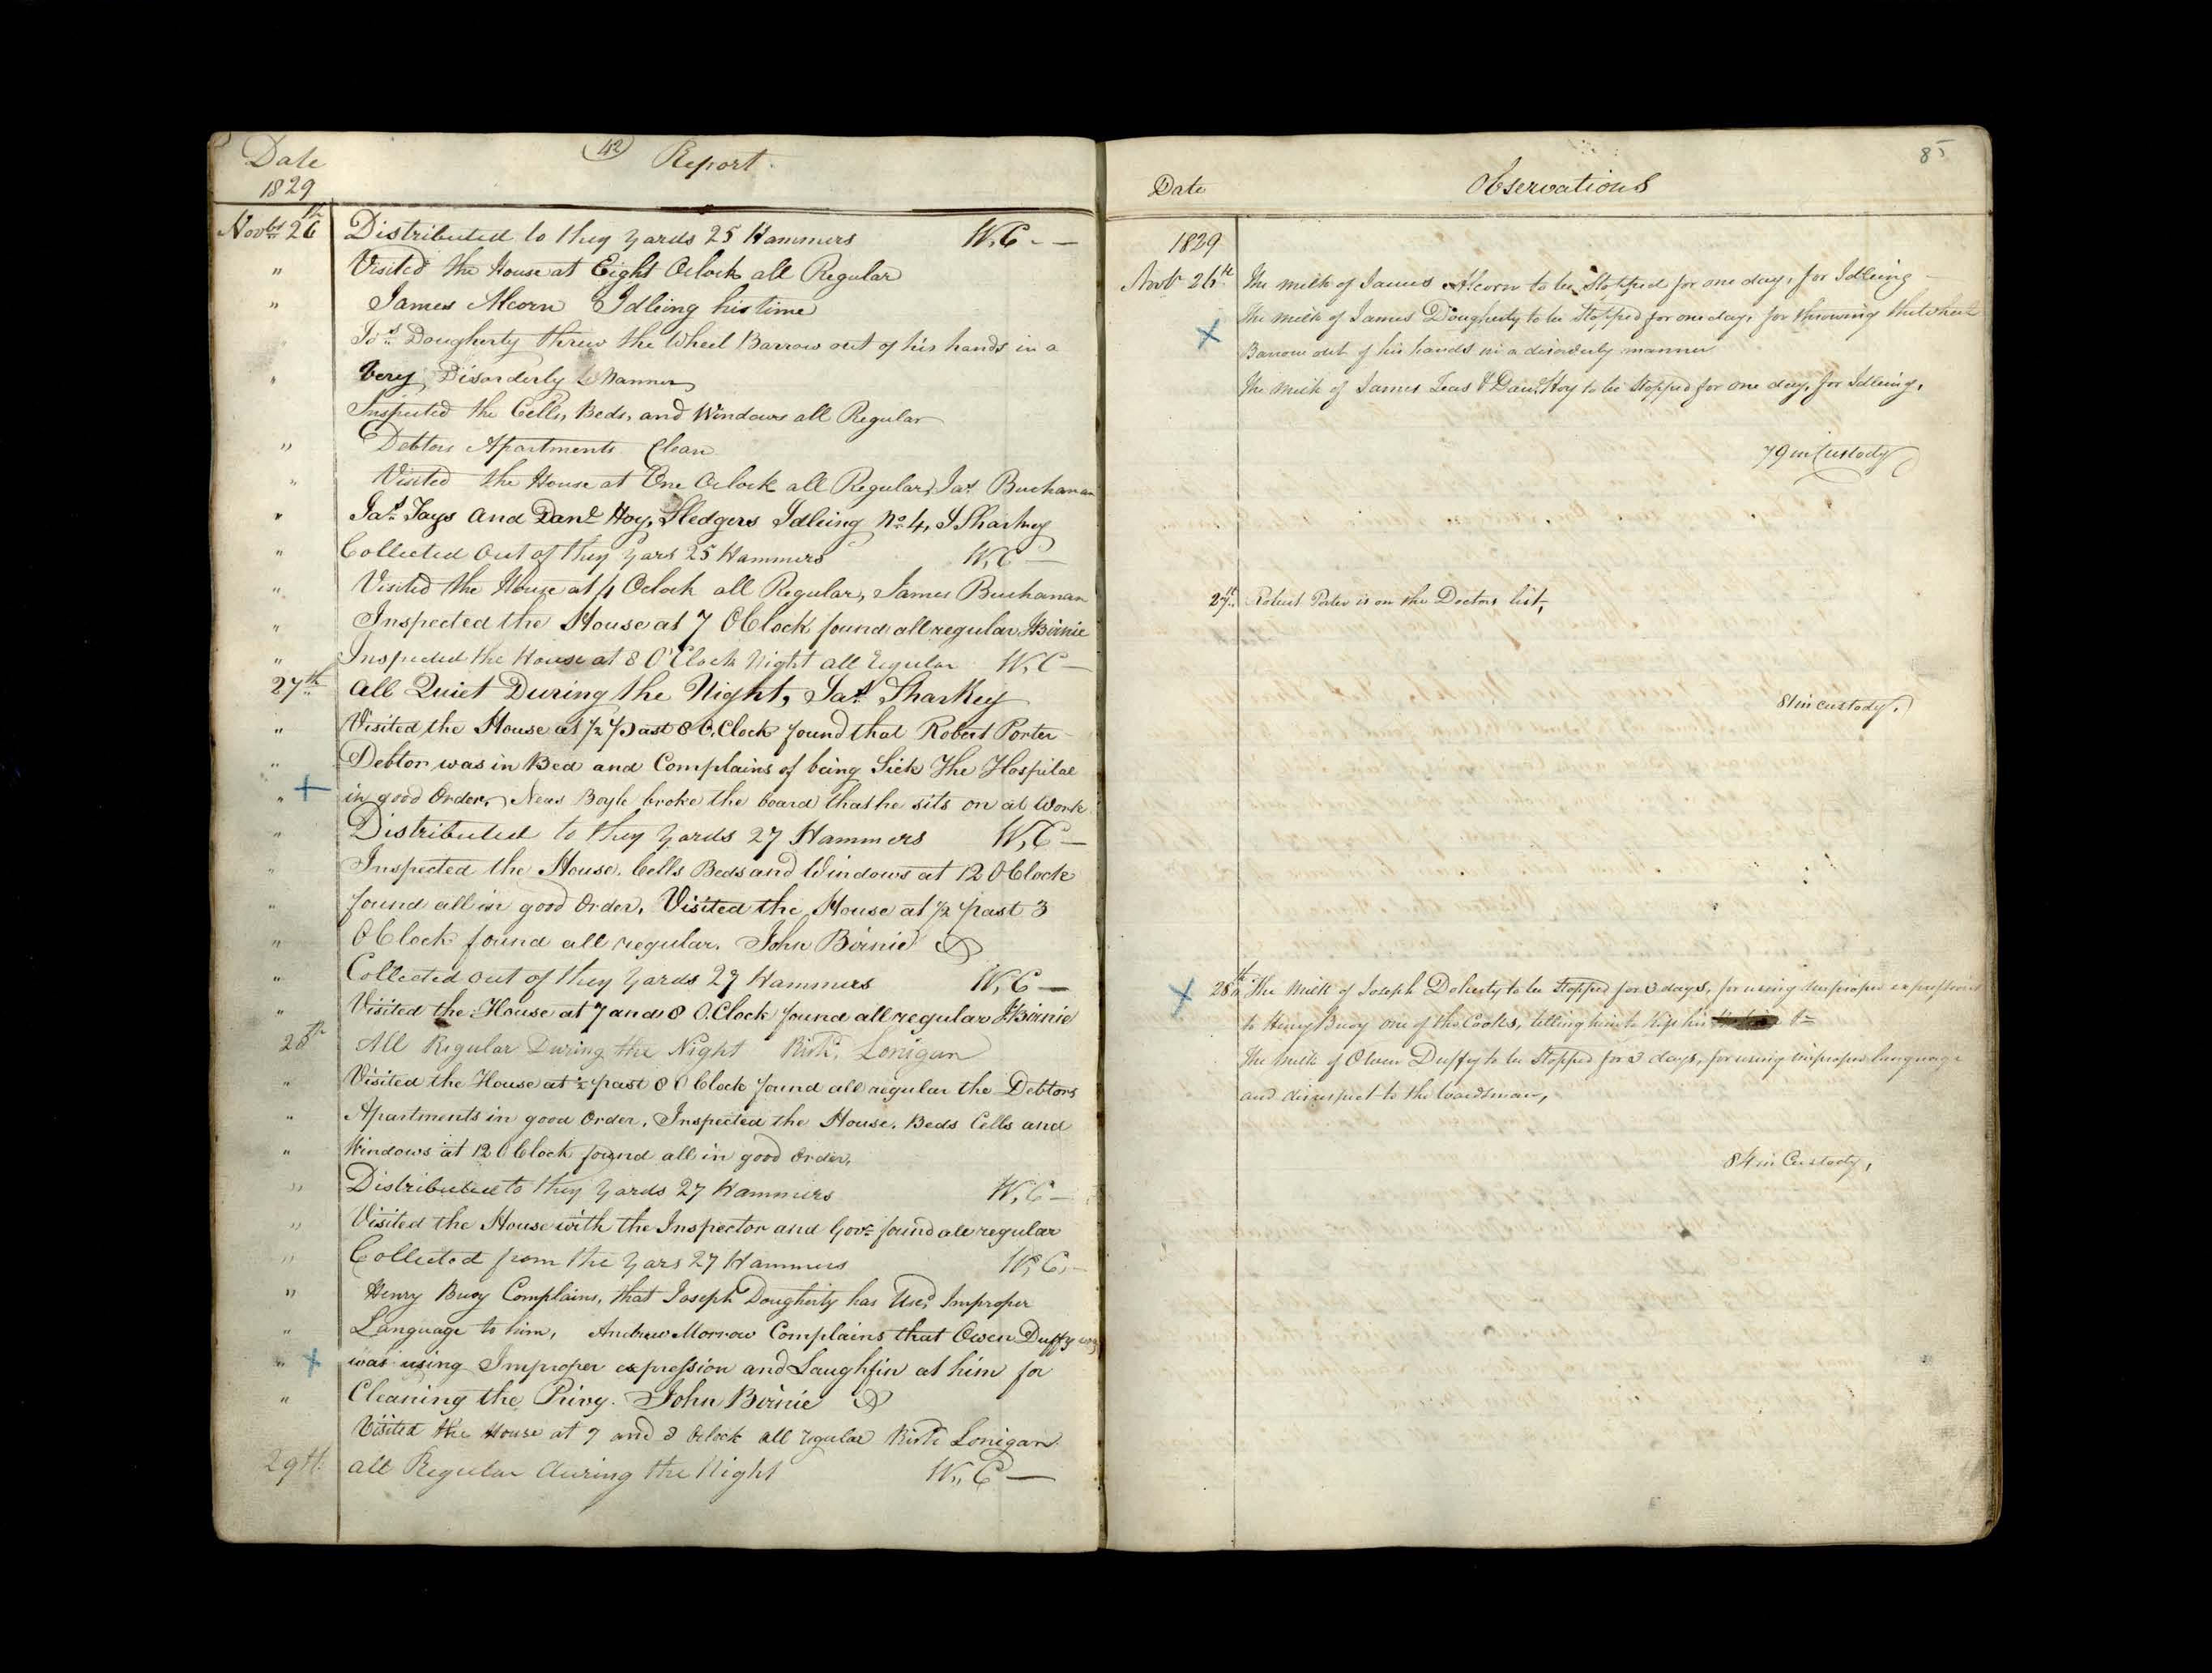 Date
1829
42
Report.
Novbr 26th Distributed to they yards 25 Hammers W,C - —
" Visited the House at Eight Oclock all Regular
" James Alcorn Idleing his time
Jas Dougherty threw the Wheel Barrow out of his hands in a
" Very Disorderly Manner
Inspected the Cells, Beds, and Windows all Regular
" Debtors Apartments Clean
" Visited the House at One Oclock all Regular, Jas Buchanan
" Jas Tays and Danl Hoy, Sledgers Idleing No 4, J Sharkey
" Collected out of they yars 25 Hammers W,C —
" Visited the House at 4 Oclock all Regular, James Buchanan
" Inspected the House at 7 OClock found all regular J Birnie
" Inspected the House at 8 O'Clock Night all regular W,C —
27th all Quiet During the Night, Jas Sharkey
" Visited the House at 1/2 past 8 O,Clock found that Robert Porter
" Debtor was in Bed and Complains of being Sick The Hospital
" + in good Order, Neas Boyle broke the board that he sits on at Work
" Distributed to they yards 27 Hammers W,C —
" Inspected the House, Cells Beds and Windows at 12 OClock
" found all in good Order, Visited the House at 1/2 past 3
" OClock found all regular. John Birnie
" Collected out of they yards 27 Hammers W,C —
" Visited the House at 7 and 8 O.Clock found all regular J Birnie
28th All Regular During the Night Richd. Lonigan
" Visited the House at 1/2 past 8 OClock found all regular the Debtors
" Apartments in good Order, Inspected the House, Beds Cells and
" Windows at 12 OClock found all in good Order,
" Distributed to they yards 27 Hammers W,C —
" Visited the House with the Inspector and Govr found all regular
" Collected from the yars 27 Hammers W,C, —
" Henry Buoy Complains, that Joseph Dougherty has Used Improper
" Language to him, Andrew Morrow Complains that Owen Duffy
" x was using Improper expression and Laughfin at him for
" Cleaning the Privy. John Birnie
Visited the House at 7 and 8 Oclock all regular Richd Lonigan
29th all Regular during the Night W,, C —
85
Date
Observations
1829
Novbr 26th The milk of James Alcorn to be Stopped for one day, for Idleing
x The milk of James Dougherty to be Stopped for one day, for throwing the wheel
Barrow out of his hands in a disorderly manner
The milk of James Teas & Danl Hoy to be Stopped for one day, for Idleing,
79 in Custody
27th Robert Porter is on the Doctors list,
81 in custody,
x 28th The Milk of Joseph Doherty to be Stopped for 3 days, for using improper expressions
to Henry Buoy one of the Cooks, telling him to Kiss his &c
The milk of Owen Duffy to be Stopped for 3 days, for using improper language
and disrespect to the wardsman,
84 in Custody,